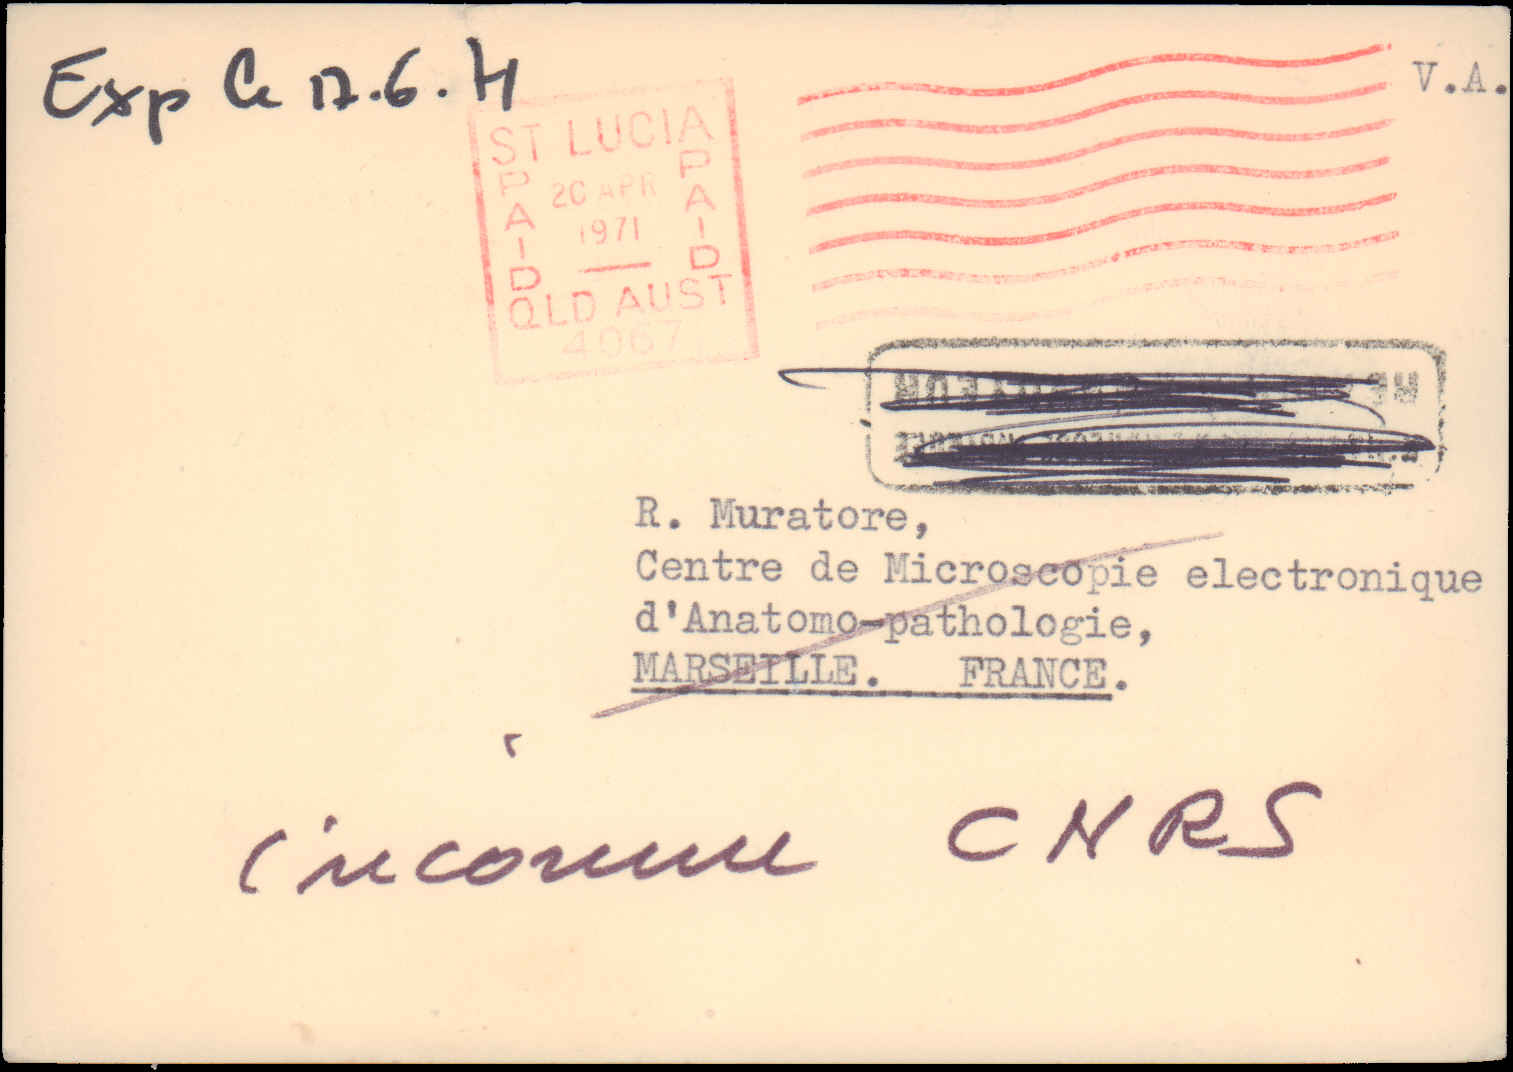 Exp le 17.6.71
V.A.
ST LUCIA
PAID
20 APR
1971
PAID
QLD AUST
4067
R. Muratore,
Centre de Microscopie electronique
d'Anatomo-pathologie,
MARSEILLE. FRANCE.
inconnu CNRS